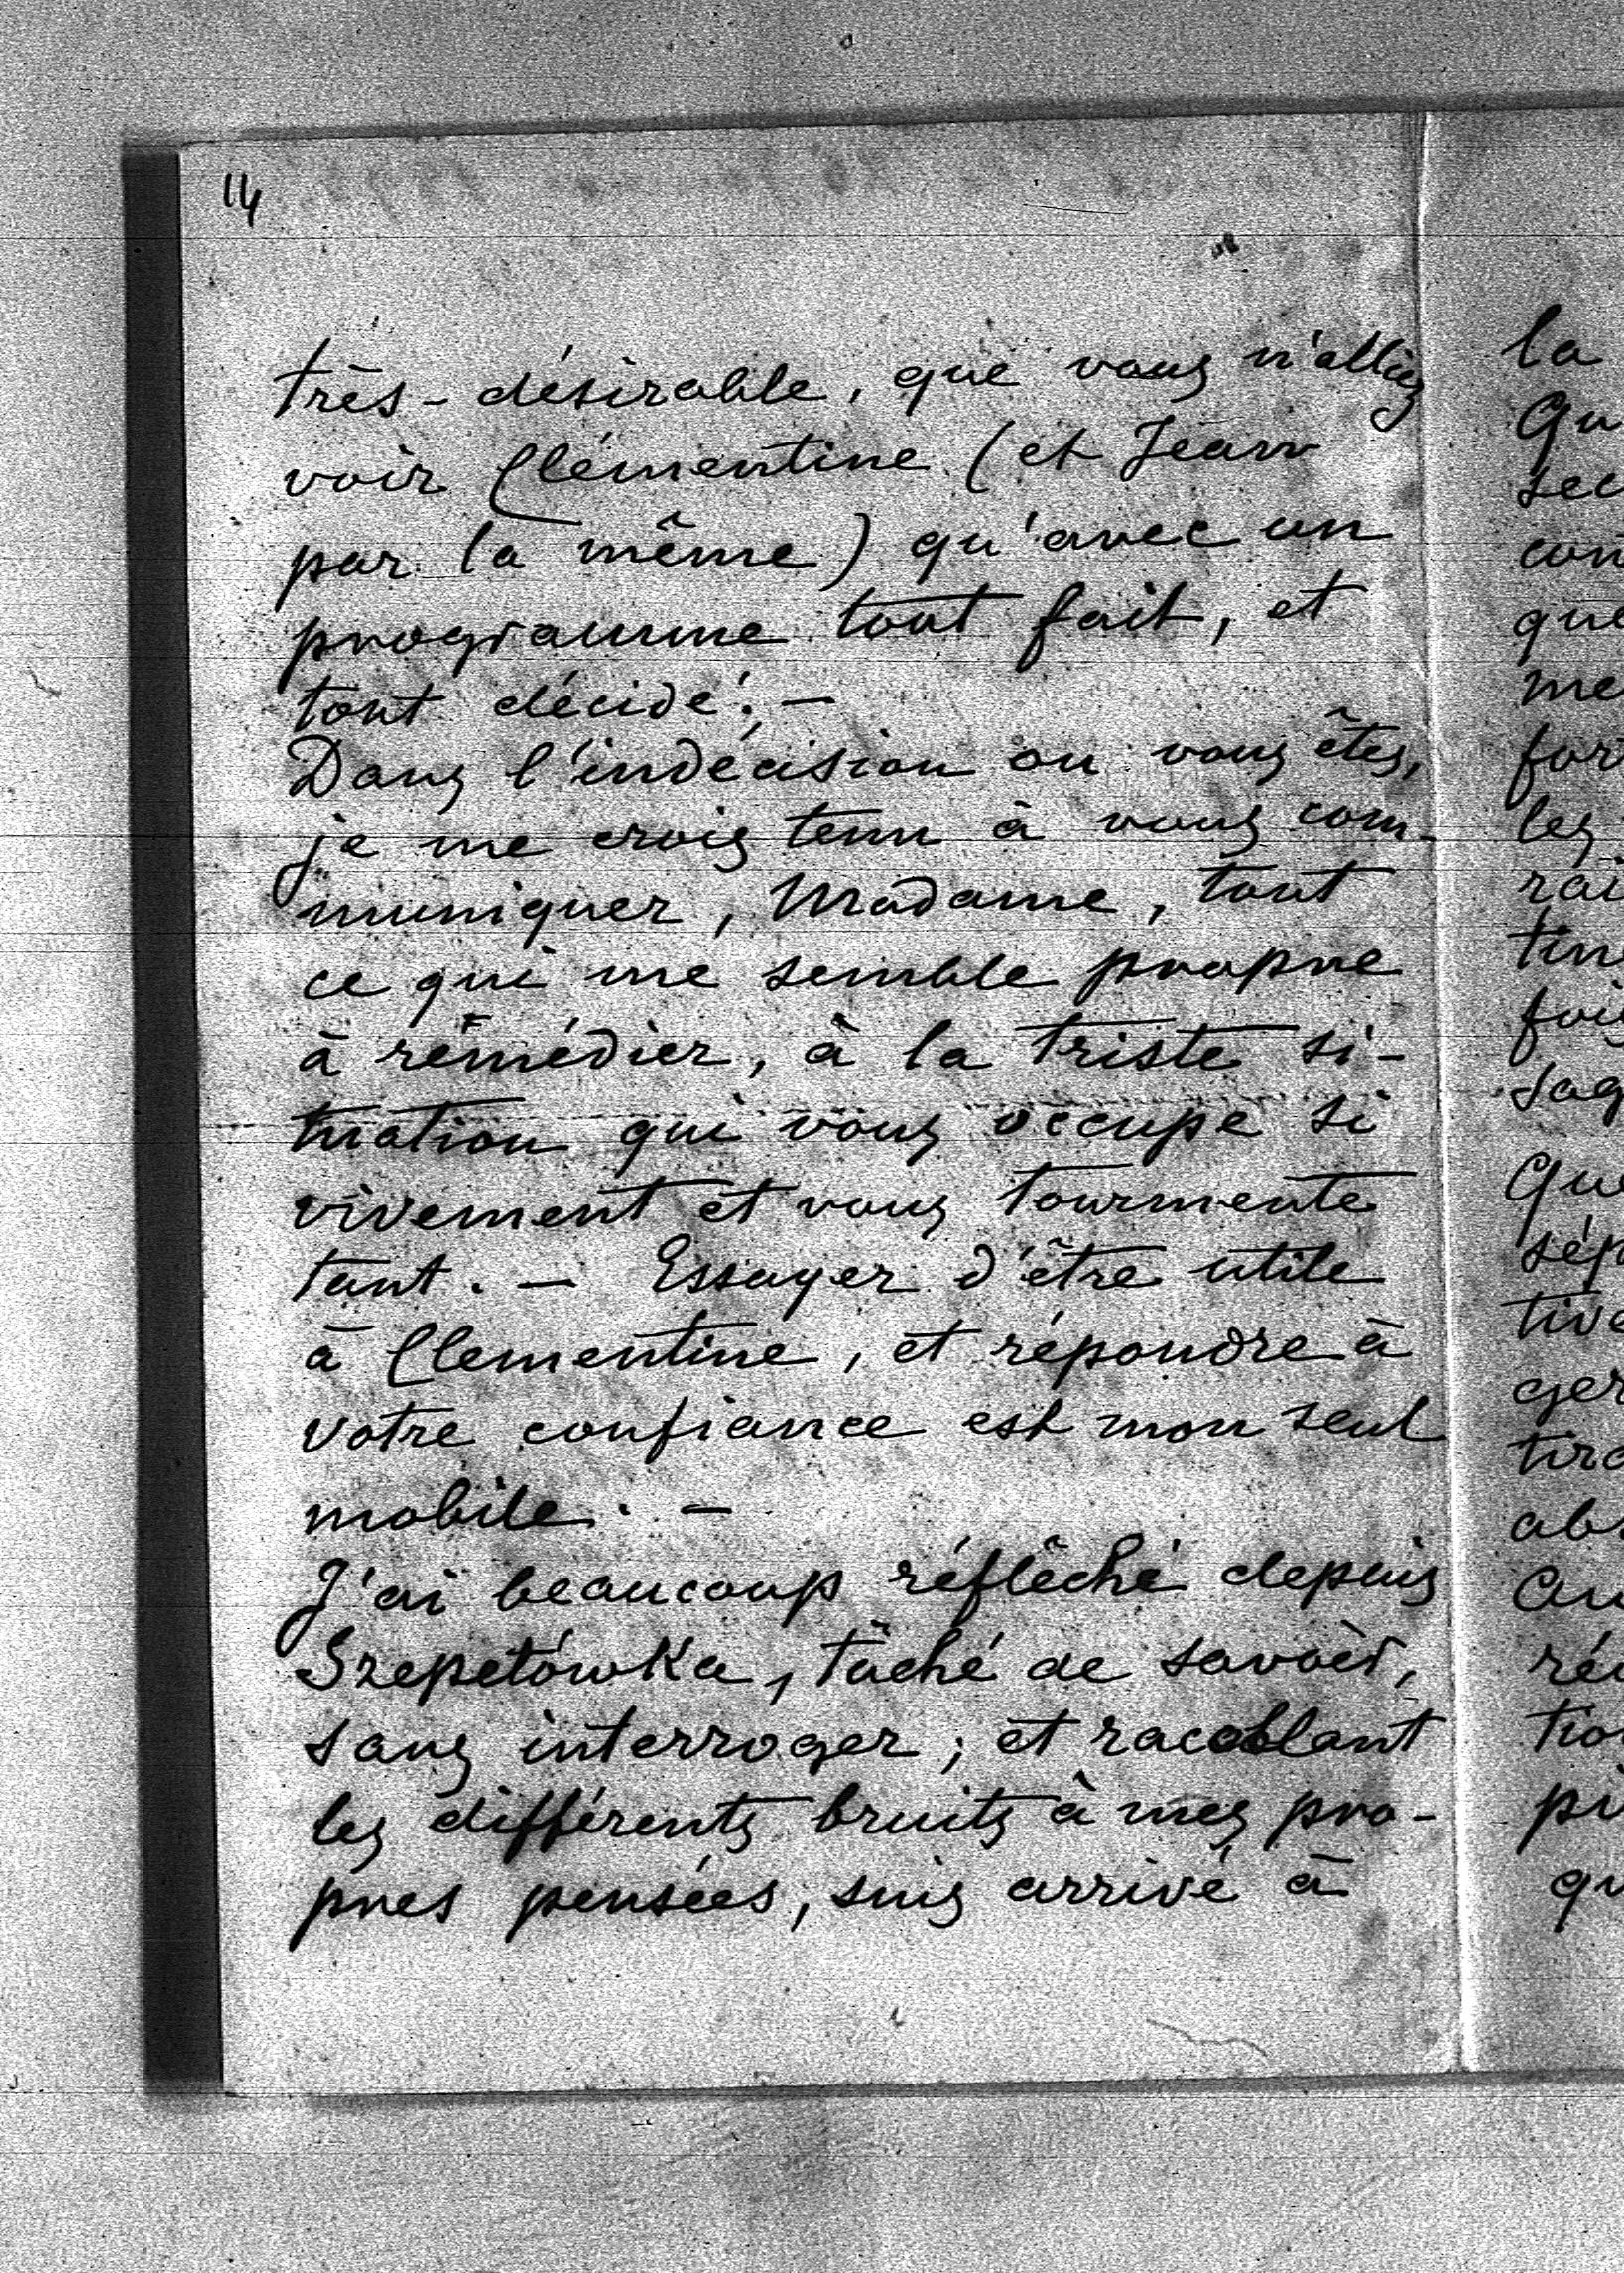 14
très-désirable, que vous n'alliez
voir Clémentine (et Jean
par la même) qu'avec un
programme tout fait, et
tout décidé. —
Dans l'indécision ou vous êtes,
je me crois tenu à vous com-
muniquer, Madame, tout
ce qui me semble propre
à rémédier, à la triste si-
tuation qui vous occupe si
vivement et vous tourmente
tant. — Essayer d'être utile
à Clementine, et répondre à
votre confiance est mon seul
mobile. —
J'ai beaucoup réfléché depuis
Szepetówka, tâché de savoir,
sans interroger; et
les différents bruits à mes pro-
pres pensées, suis arrivé à
la
Qu
sec
con
que
me
for
les
rai
tin
fois
sag
Que
sép
tive
ger
tira
abs
réu
tion
qu